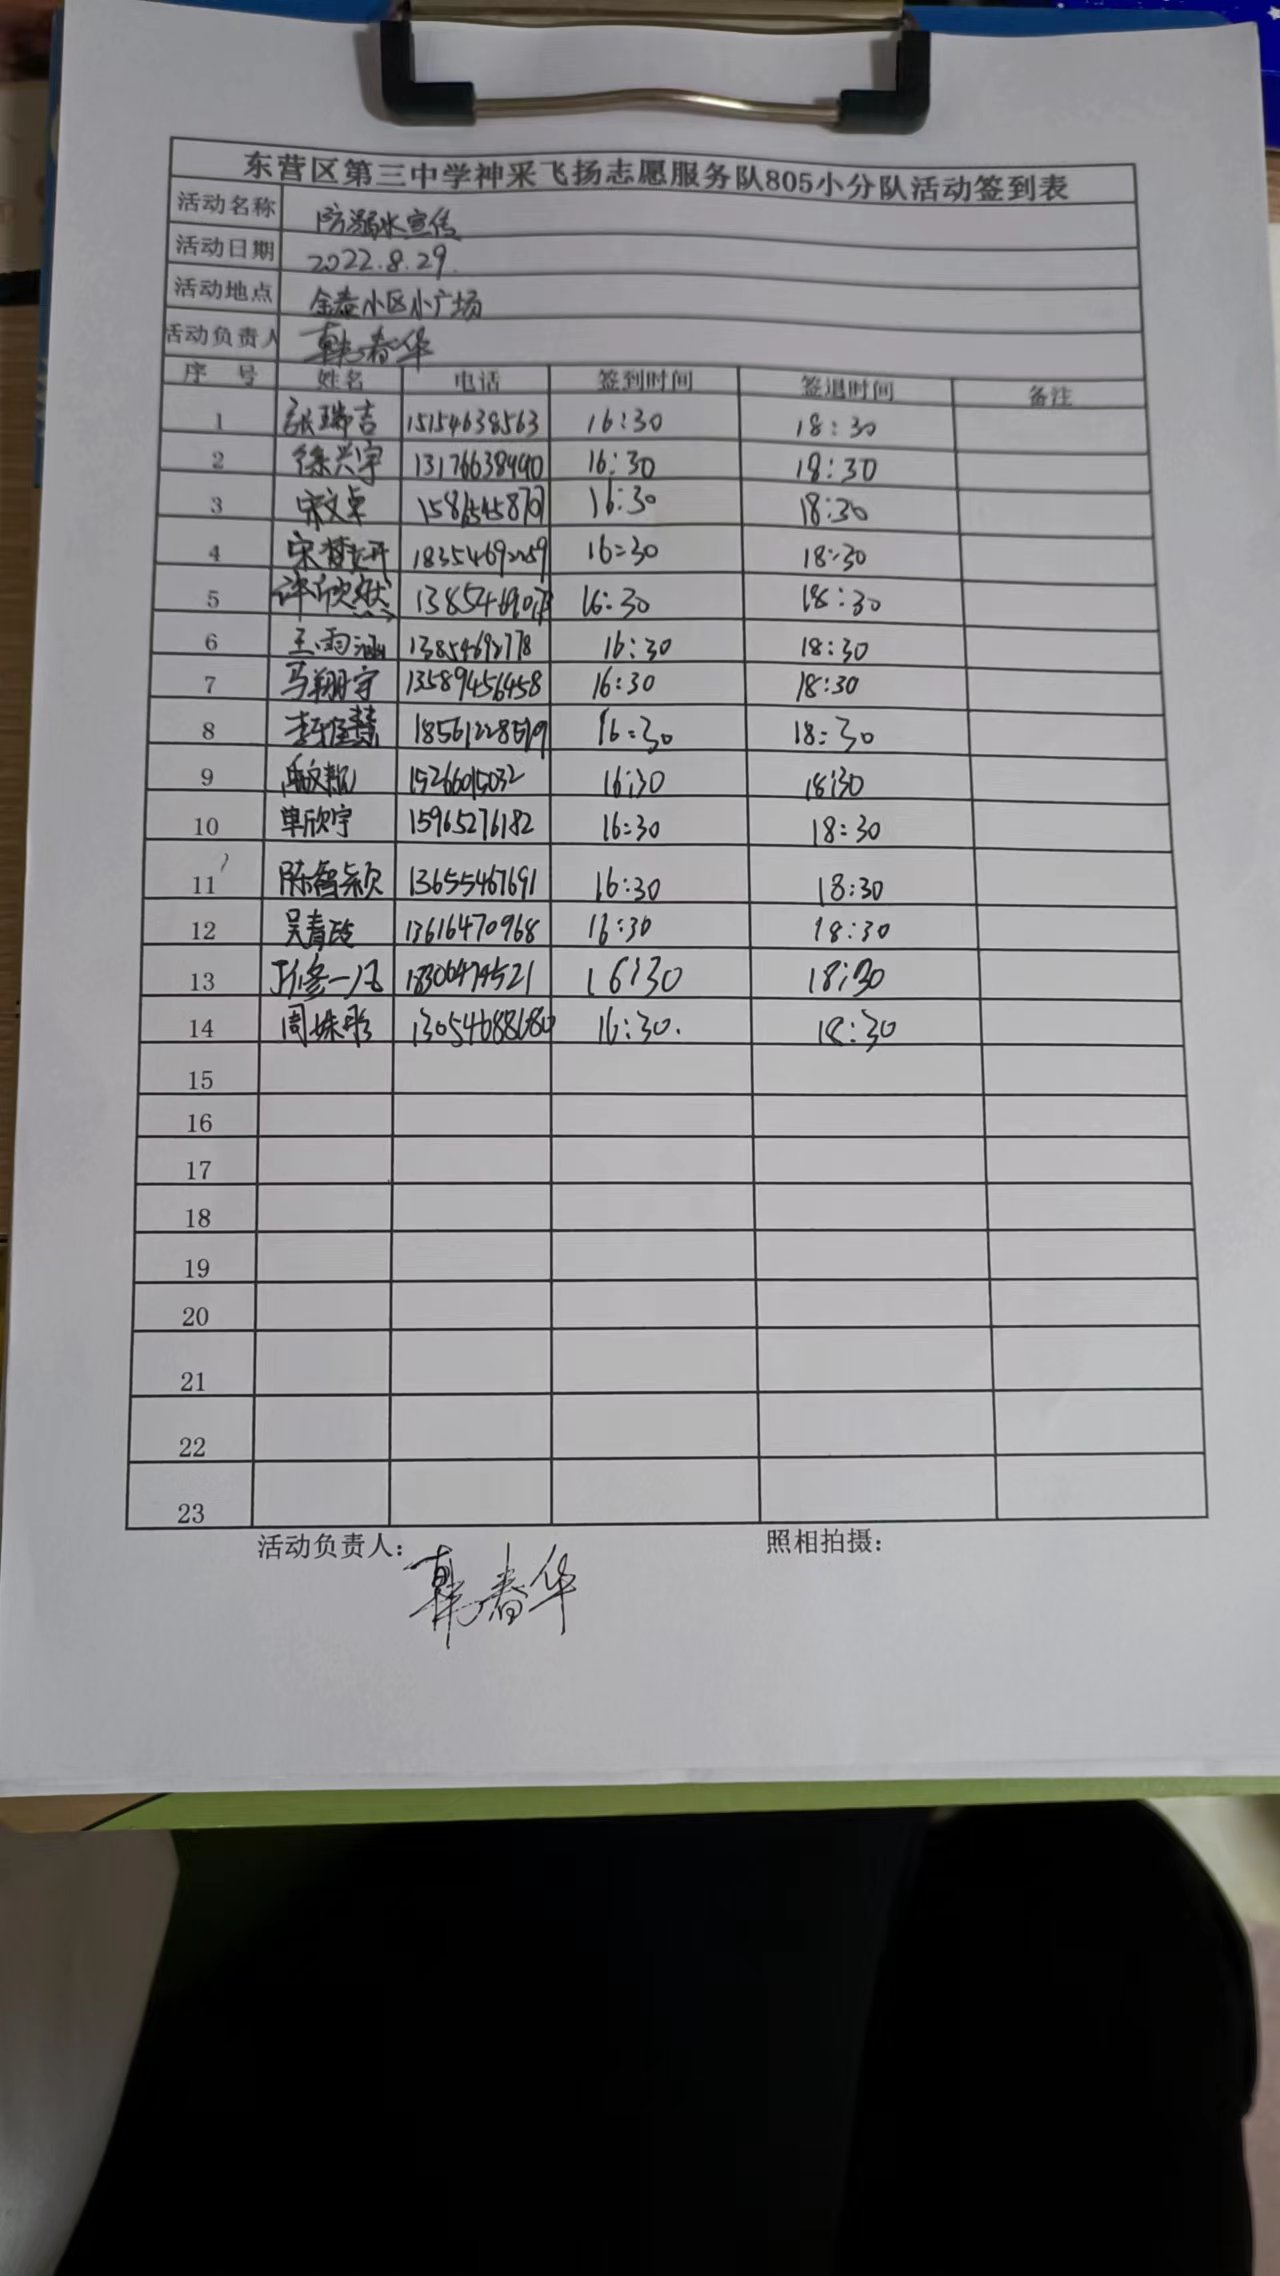 东营区第三中学神采飞扬志愿服务队805小分队活动签到表
活动名称 防溺水宣传
活动日期 2022.8.29.
活动地点 金泰小区小广场
活动负责人 韩春华
序 号 姓名 电话 签到时间 签退时间 备注
1 张瑞吉 15154638563 16:30 18:30
2 徐兴宇 13176638440 16:30 18:30
3 宋文卓 16:30 18:30
4 宋梦妍 18354692259 16:30 18:30
5 许欣然 16:30 18:30
6 王雨涵 13854692778 16:30 18:30
7 马翔宇 13589456458 16:30 18:30
8 李佳慧 18561228519 16:30 18:30
9 15266015032 16:30 18:30
10 单欣宇 15965276182 16:30 18:30
11 陈智颖 13655467691 16:30 18:30
12 吴青政 13616470968 16:30 18:30
13 修一凡 18306474521 16:30 18:30
14 周姝彤 13054688680 16:30. 18:30
15
16
17
18
19
20
21
22
23
活动负责人: 韩春华 照相拍摄: